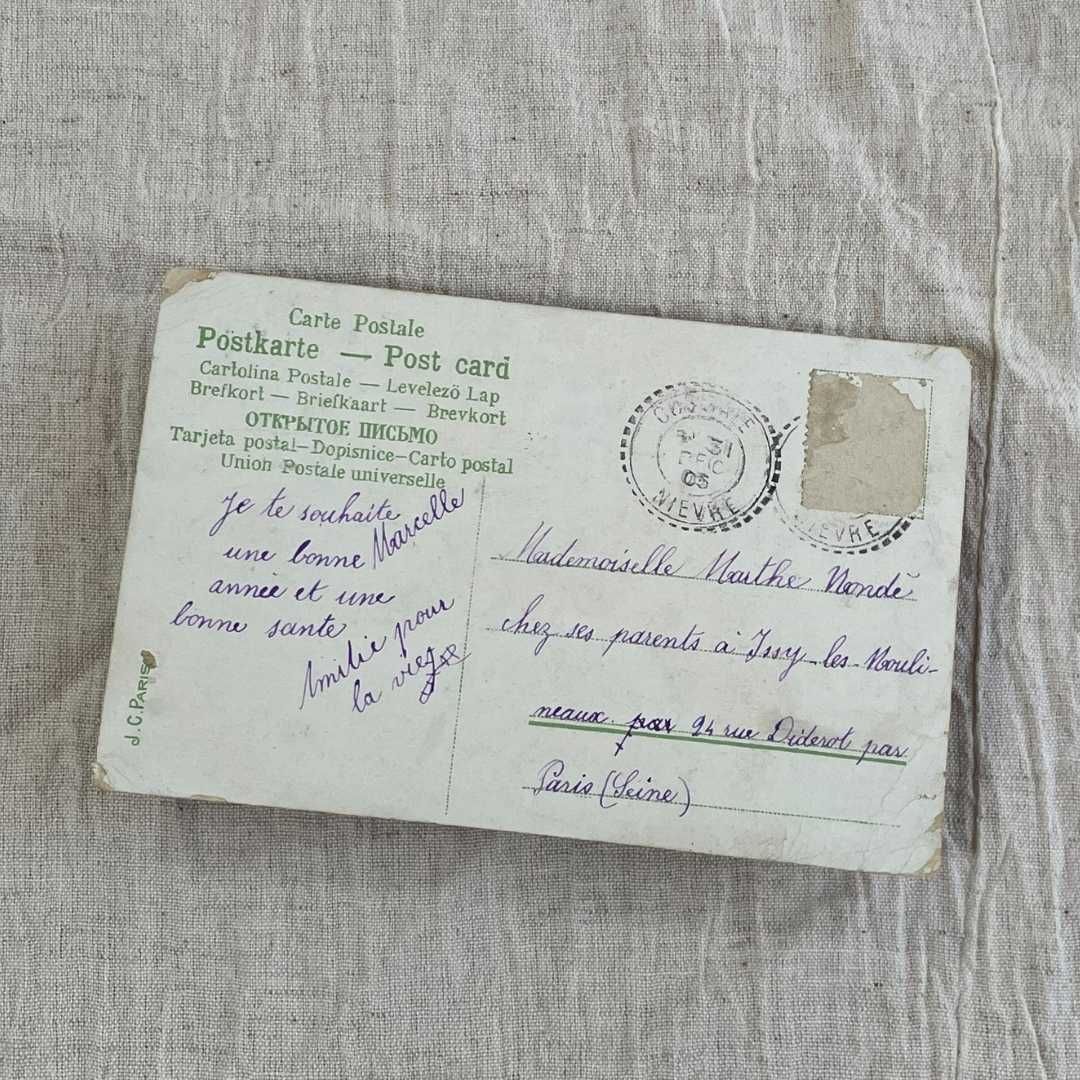 Carte Postale
Postkarte — Post card
Cartolina Postale — Levelező Lap
Brefkort — Briefkaart — Brevkort
ОТКРЫТОЕ ПИСЬМО
Tarjeta postal–Dopisnice–Carto postal
Union Postale universelle
Je te souhaite
une bonne Marcelle
année et une
bonne sante
Amitié pour
la vie
J.C. PARIS
31
DEC
05
NIEVRE
NIEVRE
Mademoiselle Marthe
chez ses parents à Issy les Mouli-
neaux par 24 rue Diderot par
Paris (Seine)